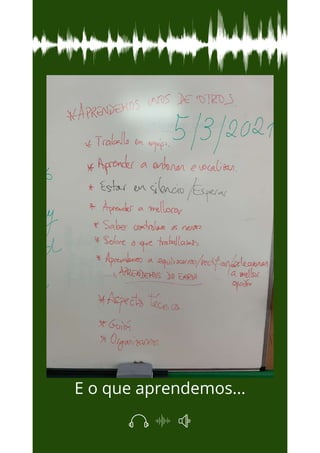 * APRENDEMOS UNOS DE OTROS
5/3/2021
* Traballo en equipo.
* Aprender a entonar e vocalizar.
* Estar en silencio / Esperar
* Aprender a mellorar
* Saber controlar os nervos
* Sobre o que traballamos
* Aprendemos a equivocarnos
seleccionar
a mellor
opción
APRENDEMOS DO ERRO
* Aspecto técnico
* Guión
* Organizarnos
y
d
E o que aprendemos...